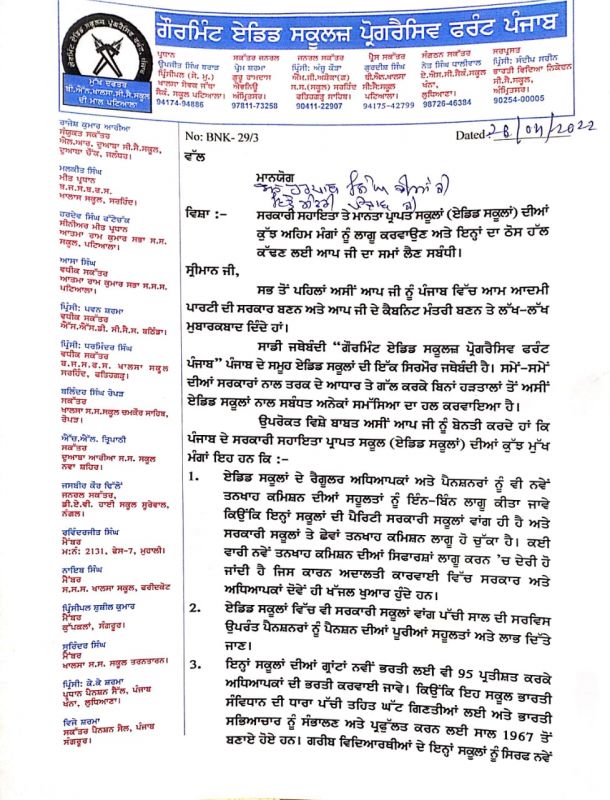 ਗੌਰਮਿੰਟ ਏਡਿਡ ਸਕੂਲਜ਼ ਪ੍ਰੋਗਰੈਸਿਵ ਫਰੰਟ ਪੰਜਾਬ
ਮੁੱਖ ਦਫਤਰ
ਬੀ.ਐੱਨ.ਖਾਲਸਾ.ਸੀ.ਸੈ.ਸਕੂਲ
ਦੀ ਮਾਲ ਪਟਿਆਲਾ
ਪ੍ਰਧਾਨ
ਉਪਜੀਤ ਸਿੰਘ ਬਰਾੜ
ਪ੍ਰਿੰਸੀਪਲ (ਸੇ. ਮੁ.)
ਖਾਲਸਾ ਸੇਵਕ ਜੱਥਾ
ਸੈਕੰ. ਸਕੂਲ ਪਟਿਆਲਾ
94174-94886
ਸਕੱਤਰ ਜਨਰਲ
ਪ੍ਰੇਮ ਸ਼ਰਮਾ
ਗੁਰੂ ਰਾਮਦਾਸ
ਐਵਨਿਊ
ਅੰਮ੍ਰਿਤਸਰ।
97811-73258
ਜਨਰਲ ਸਕੱਤਰ
ਪ੍ਰਿੰਸੀ: ਅੰਜੂ ਕੌੜਾ
ਐੱਮ.ਜੀ.ਅਸ਼ੋਕਾ(ਗ)
ਸ.ਸ.(ਸਕੂਲ) ਸਰਹਿੰਦ
ਫਤਿਹਗੜ੍ਹ ਸਾਹਿਬ।
90411-22907
ਪ੍ਰੈਸ ਸਕੱਤਰ
ਗੁਰਦੀਸ਼ ਸਿੰਘ
ਬੀ.ਐੱਨ.ਖਾਲਸਾ
ਸ.ਸ.ਸਕੂਲ,
ਪਟਿਆਲਾ
94175-42799
ਸੰਗਠਨ ਸਕੱਤਰ
ਨੇਤ ਸਿੰਘ ਧਾਲੀਵਾਲ
ਏ.ਐਸ.ਸੀ.ਸੈਕੰ.ਸਕੂਲ
ਖੰਨਾ,
ਲੁਧਿਆਣਾ।
98726-46384
ਸਰਪ੍ਰਸਤ
ਪ੍ਰਿੰਸੀ: ਸੰਦੀਪ ਸਰੀਨ
ਭਾਰਤੀ ਵਿਦਿਆ ਨਿਕੇਦਨ
ਸੀ.ਸੈ.ਸਕੂਲ
ਅੰਮ੍ਰਿਤਸਰ।
90254-00005
No: BNK- 29/3
Dated 28/04/2022
ਰਾਜੇਸ਼ ਕੁਮਾਰ ਆਰੀਆ
ਸੰਯੁਕਤ ਸਕੱਤਰ
ਐਲ.ਆਰ. ਦੁਆਬਾ ਸੀ.ਸੈ.ਸਕੂਲ,
ਦੁਆਬਾ ਚੌਂਕ, ਜਲੰਧਰ।
ਮਲਕੀਤ ਸਿੰਘ
ਮੀਤ ਪ੍ਰਧਾਨ
ਬ.ਜ.ਸ.ਬ.ਫ.ਸ.
ਖਾਲਸਾ ਸਕੂਲ, ਸਰਹਿੰਦ।
ਹਰਦੇਵ ਸਿੰਘ ਫੱਟੇਚੱਕ
ਸੀਨੀਅਰ ਮੀਤ ਪ੍ਰਧਾਨ
ਆਤਮਾ ਰਾਮ ਕੁਮਾਰ ਸਭਾ ਸ.ਸ.
ਸਕੂਲ, ਪਟਿਆਲਾ।
ਆਸਾ ਸਿੰਘ
ਵਧੀਕ ਸਕੱਤਰ
ਆਤਮਾ ਰਾਮ ਕੁਮਾਰ ਸਭਾ ਸ.ਸ.ਸ.
ਪਟਿਆਲਾ।
ਪ੍ਰਿੰਸੀ: ਪਵਨ ਸ਼ਰਮਾ
ਵਧੀਕ ਸਕੱਤਰ
ਐੱਸ.ਐੱਸ.ਡੀ. ਸੀ.ਸੈ.ਸ. ਬਠਿੰਡਾ।
ਪ੍ਰਿੰਸੀ: ਧਰਮਿੰਦਰ ਸਿੰਘ
ਵਧੀਕ ਸਕੱਤਰ
ਬ.ਜ.ਸ.ਫ.ਸ. ਖਾਲਸਾ ਸਕੂਲ
ਸਰਹਿੰਦ, ਫਤਿਹਗੜ੍ਹ।
ਬਲਿੰਦਰ ਸਿੰਘ ਰੋਪੜ
ਸਕੱਤਰ
ਖਾਲਸਾ ਸ.ਸ.ਸਕੂਲ ਚਮਕੌਰ ਸਾਹਿਬ,
ਰੋਪੜ।
ਐੱਚ.ਐੱਲ. ਤ੍ਰਿਪਾਠੀ
ਸਕੱਤਰ
ਦੁਆਬਾ ਆਰੀਆ ਸ.ਸ. ਸਕੂਲ
ਨਵਾ ਸ਼ਹਿਰ।
ਜਸਬੀਰ ਕੌਰ ਢਿੱਲੋਂ
ਜਨਰਲ ਸਕੱਤਰ,
ਡੀ.ਏ.ਵੀ. ਹਾਈ ਸਕੂਲ ਸੂਰੇਵਾਲ,
ਨੰਗਲ।
ਰਵਿੰਦਰਜੀਤ ਸਿੰਘ
ਮੈਂਬਰ
ਮ:ਨੰ: 2131, ਫੇਸ-7, ਮੁਹਾਲੀ।
ਨਾਇਬ ਸਿੰਘ
ਮੈਂਬਰ
ਸ.ਸ.ਸ. ਖਾਲਸਾ ਸਕੂਲ, ਫਰੀਦਕੋਟ
ਪ੍ਰਿੰਸੀਪਲ ਸੁਸ਼ੀਲ ਕੁਮਾਰ
ਮੈਂਬਰ
ਕੁੱਪਕਲਾਂ, ਸੰਗਰੂਰ।
ਸੁਰਿੰਦਰ ਸਿੰਘ
ਮੈਂਬਰ
ਖਾਲਸਾ ਸ.ਸ. ਸਕੂਲ ਤਰਨਤਾਰਨ।
ਪ੍ਰਿੰਸੀ: ਕੇ.ਕੇ ਸ਼ਰਮਾ
ਪ੍ਰਧਾਨ ਪੈਨਸ਼ਨ ਸੈੱਲ, ਪੰਜਾਬ
ਖੰਨਾ, ਲੁਧਿਆਣਾ।
ਵਿਜੇ ਸ਼ਰਮਾ
ਸਕੱਤਰ ਪੈਨਸ਼ਨ ਸੈਲ, ਪੰਜਾਬ
ਸੰਗਰੂਰ।
ਵੱਲ
ਮਾਨਯੋਗ
ਵਿਸ਼ਾ :- ਸਰਕਾਰੀ ਸਹਾਇਤਾ ਤੇ ਮਾਨਤਾ ਪ੍ਰਾਪਤ ਸਕੂਲਾਂ (ਏਡਿਡ ਸਕੂਲਾਂ) ਦੀਆਂ
ਕੁੱਝ ਅਹਿਮ ਮੰਗਾਂ ਨੂੰ ਲਾਗੂ ਕਰਵਾਉਣ ਅਤੇ ਇਨ੍ਹਾਂ ਦਾ ਠੋਸ ਹੱਲ
ਕੱਢਣ ਲਈ ਆਪ ਜੀ ਦਾ ਸਮਾਂ ਲੈਣ ਸਬੰਧੀ।
ਸ੍ਰੀਮਾਨ ਜੀ,
ਸਭ ਤੋਂ ਪਹਿਲਾਂ ਅਸੀਂ ਆਪ ਜੀ ਨੂੰ ਪੰਜਾਬ ਵਿੱਚ ਆਮ ਆਦਮੀ
ਪਾਰਟੀ ਦੀ ਸਰਕਾਰ ਬਣਨ ਅਤੇ ਆਪ ਜੀ ਦੇ ਕੈਬਨਿਟ ਮੰਤਰੀ ਬਣਨ ਤੇ ਲੱਖ-ਲੱਖ
ਮੁਬਾਰਕਬਾਦ ਦਿੰਦੇ ਹਾਂ।
ਸਾਡੀ ਜਥੇਬੰਦੀ “ਗੌਰਮਿੰਟ ਏਡਿਡ ਸਕੂਲਜ਼ ਪ੍ਰੋਗਰੈਸਿਵ ਫਰੰਟ
ਪੰਜਾਬ” ਪੰਜਾਬ ਦੇ ਸਮੂਹ ਏਡਿਡ ਸਕੂਲਾਂ ਦੀ ਇੱਕ ਸਿਰਮੌਰ ਜਥੇਬੰਦੀ ਹੈ। ਸਮੇਂ-ਸਮੇਂ
ਦੀਆਂ ਸਰਕਾਰਾਂ ਨਾਲ ਤਰਕ ਦੇ ਆਧਾਰ ਤੇ ਗੱਲ ਕਰਕੇ ਬਿਨਾਂ ਹੜਤਾਲਾਂ ਤੋਂ ਅਸੀਂ
ਏਡਿਡ ਸਕੂਲਾਂ ਨਾਲ ਸਬੰਧਤ ਅਨੇਕਾਂ ਸਮੱਸਿਆ ਦਾ ਹਲ ਕਰਵਾਇਆ ਹੈ।
ਉਪਰੋਕਤ ਵਿਸ਼ੇ ਬਾਬਤ ਅਸੀਂ ਆਪ ਜੀ ਨੂੰ ਬੇਨਤੀ ਕਰਦੇ ਹਾਂ ਕਿ
ਪੰਜਾਬ ਦੇ ਸਰਕਾਰੀ ਸਹਾਇਤਾ ਪ੍ਰਾਪਤ ਸਕੂਲ (ਏਡਿਡ ਸਕੂਲਾਂ) ਦੀਆਂ ਕੁੱਝ ਮੁੱਖ
ਮੰਗਾਂ ਇਹ ਹਨ ਕਿ :-
1. ਏਡਿਡ ਸਕੂਲਾਂ ਦੇ ਰੈਗੂਲਰ ਅਧਿਆਪਕਾਂ ਅਤੇ ਪੈਨਸ਼ਨਰਾਂ ਨੂੰ ਵੀ ਨਵੇਂ
ਤਨਖਾਹ ਕਮਿਸ਼ਨ ਦੀਆਂ ਸਹੂਲਤਾਂ ਨੂੰ ਇੰਨ-ਬਿੰਨ ਲਾਗੂ ਕੀਤਾ ਜਾਵੇ
ਕਿਉਂਕਿ ਇਨ੍ਹਾਂ ਸਕੂਲਾਂ ਦੀ ਪੈਰਿਟੀ ਸਰਕਾਰੀ ਸਕੂਲਾਂ ਵਾਂਗ ਹੀ ਹੈ ਅਤੇ
ਸਰਕਾਰੀ ਸਕੂਲਾਂ ਤੇ ਛੇਵਾਂ ਤਨਖਾਹ ਕਮਿਸ਼ਨ ਲਾਗੂ ਹੋ ਚੁੱਕਾ ਹੈ। ਕਈ
ਵਾਰੀ ਨਵੇਂ ਤਨਖਾਹ ਕਮਿਸ਼ਨ ਦੀਆਂ ਸਿਫਾਰਸ਼ਾਂ ਲਾਗੂ ਕਰਨ ’ਚ ਦੇਰੀ ਹੋ
ਜਾਂਦੀ ਹੈ ਜਿਸ ਕਾਰਨ ਅਦਾਲਤੀ ਕਾਰਵਾਈ ਵਿੱਚ ਸਰਕਾਰ ਅਤੇ
ਅਧਿਆਪਕਾਂ ਦੋਵੇਂ ਹੀ ਖੱਜਲ ਖੁਆਰ ਹੁੰਦੇ ਹਨ।
2. ਏਡਿਡ ਸਕੂਲਾਂ ਵਿੱਚ ਵੀ ਸਰਕਾਰੀ ਸਕੂਲਾਂ ਵਾਂਗ ਪੱਚੀ ਸਾਲ ਦੀ ਸਰਵਿਸ
ਉਪਰੰਤ ਪੈਨਸ਼ਨਰਾਂ ਨੂੰ ਪੈਨਸ਼ਨ ਦੀਆਂ ਪੂਰੀਆਂ ਸਹੂਲਤਾਂ ਅਤੇ ਲਾਭ ਦਿੱਤੇ
ਜਾਣ।
3. ਇਨ੍ਹਾਂ ਸਕੂਲਾਂ ਦੀਆਂ ਗ੍ਰਾਂਟਾਂ ਨਵੀਂ ਭਰਤੀ ਲਈ ਵੀ 95 ਪ੍ਰਤੀਸ਼ਤ ਕਰਕੇ
ਅਧਿਆਪਕਾਂ ਦੀ ਭਰਤੀ ਕਰਵਾਈ ਜਾਵੇ। ਕਿਉਂਕਿ ਇਹ ਸਕੂਲ ਭਾਰਤੀ
ਸੰਵਿਧਾਨ ਦੀ ਧਾਰਾ ਪੱਚੀ ਤਹਿਤ ਘੱਟ ਗਿਣਤੀਆਂ ਲਈ ਅਤੇ ਭਾਰਤੀ
ਸਭਿਆਚਾਰ ਨੂੰ ਸੰਭਾਲਣ ਅਤੇ ਪ੍ਰਫੁੱਲਤ ਕਰਨ ਲਈ ਸਾਲ 1967 ਤੋਂ
ਬਣਾਏ ਹੋਏ ਹਨ। ਗਰੀਬ ਵਿਦਿਆਰਥੀਆਂ ਦੇ ਇਨ੍ਹਾਂ ਸਕੂਲਾਂ ਨੂੰ ਸਿਰਫ ਨਵੇਂ